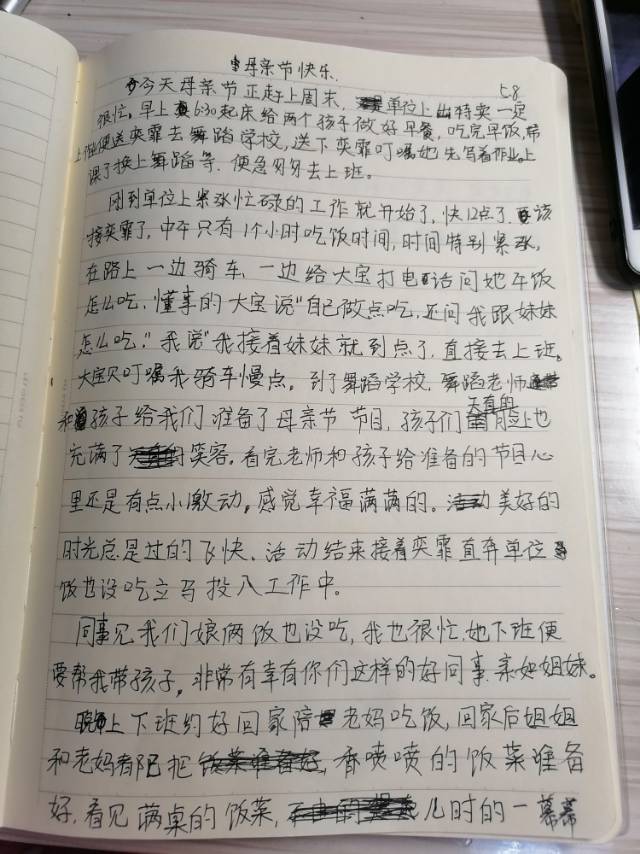 母亲节快乐.
5.8
今天母亲节正赶上周末,单位上出特卖一定
很忙。早上6:30起床给两个孩子做好早餐,吃完早饭,带
上便送奕霏去舞蹈学校,送下奕霏叮嘱她先写着作业。上
课了换上舞蹈等.便急匆匆去上班。
刚到单位上紧张忙碌的工作就开始了,快12点了该
接奕霏了,中午只有1个小时吃饭时间,时间特别紧张,
在路上一边骑车、一边给大宝打电话问她午饭
怎么吃,懂事的大宝说"自己做点吃,还问我跟妹妹
怎么吃."我说"我接着妹妹就到点了,直接去上班。
大宝只叮嘱我骑车慢点。到了舞蹈学校.舞蹈老师
和孩子给我们准备了母亲节节目,孩子们天真的脸上也
充满了笑容。看完老师和孩子给准备的节目心
里还是有点小激动,感觉幸福满满的。美好的
时光总是过的飞快.活动结束接着奕霏直奔单位
饭也没吃立马投入工作中。
同事见我们娘俩饭也没吃,我也很忙.她下班便
要帮我带孩子,非常有幸有你们这样的好同事.亲如姐妹。
晚上下班约好回家陪老妈吃饭,回家后姐姐
和老妈都已把香喷喷的饭菜准备
好,看见满桌的饭菜,儿时的一幕幕